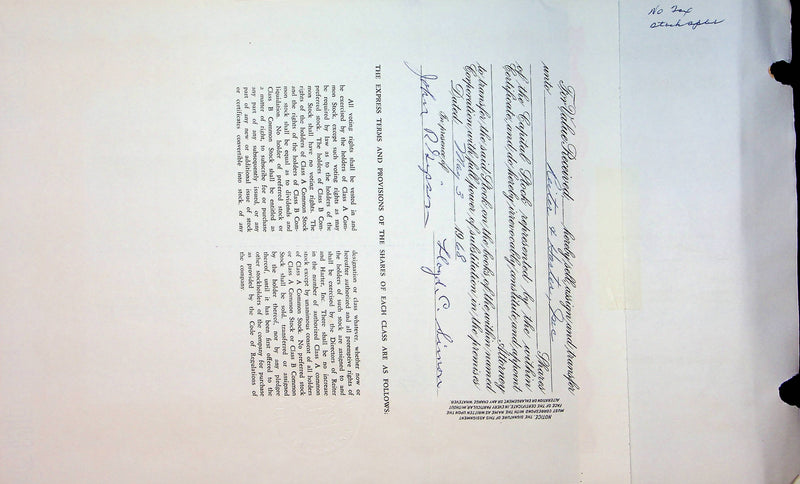 No Tax
For Value Received, hereby sell, assign and transfer
unto Reiter & Harter, Inc
Shares
of the Capital Stock represented by the within
Certificate, and do hereby irrevocably constitute and appoint
Attorney
to transfer the said Stock on the books of the within named
Corporation with full power of substitution in the premises.
Dated May 3 1968
In presence of
Lloyd C.
John R.
NOTICE. THE SIGNATURE OF THIS ASSIGNMENT
MUST CORRESPOND WITH THE NAME AS WRITTEN UPON THE
FACE OF THE CERTIFICATE, IN EVERY PARTICULAR, WITHOUT
ALTERATION OR ENLARGEMENT, OR ANY CHANGE WHATEVER.
THE EXPRESS TERMS AND PROVISIONS OF THE SHARES OF EACH CLASS ARE AS FOLLOWS:
All voting rights shall be vested in and
be exercised by the holders of Class A Com-
mon Stock, except such voting rights as may
be required by law as to the holders of the
preferred stock. The holders of Class B Com-
mon Stock shall have no voting rights. The
rights of the holders of Class A Common Stock
and the rights of the holders of Class B Com-
mon stock shall be equal as to dividends and
liquidation. No holder of preferred stock or
Class B Common Stock shall be entitled as
a matter of right, to subscribe for or purchase
any part of any subsequently issued, or any
part of any new or additional issue of stock
or certificates convertible into stock, of any
designation or class whatever, whether now or
hereafter authorized and all preemptive rights of
the holders of such stock are assigned to and
shall be exercised by the Directors of Reiter
and Harter, Inc. There shall be no increase
in the number of authorized Class A common
stock except by unanimous consent of all holders
of Class A Common Stock. No preferred stock
or Class A Common Stock or Class B Common
Stock shall be sold, transferred or assigned
by the holder thereof, nor by any pledgee
thereof, until it has been first offered to the
other stockholders of the company for purchase
as provided by the Code of Regulations of
the company.